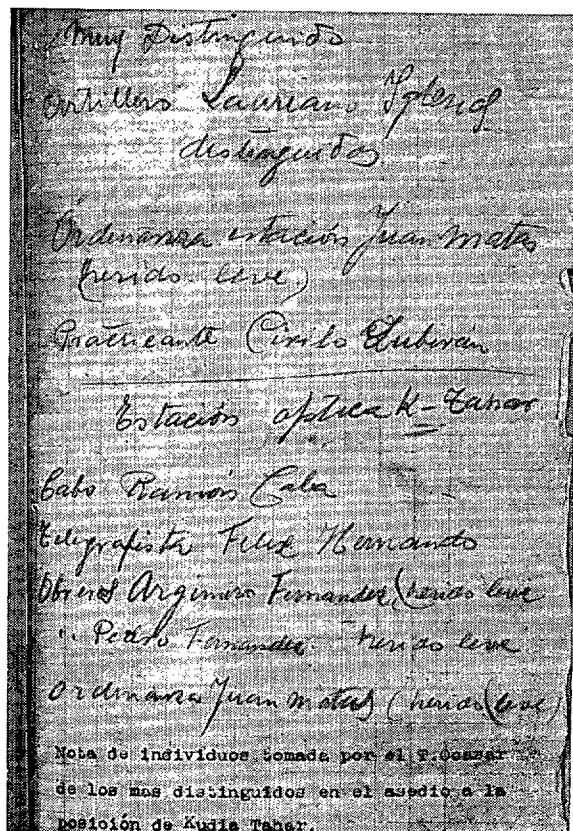 Muy Distinguido
Artillero Lauriano Iglesias
distinguidos
Ordenanza estación Juan Matas
(herido leve)
Practicante Cirilo
Estación óptica K-Tahar
Cabo Ramón Cala
Telegrafista Felix Hernando
Obreros Argimiro Fernandez (herido leve
" Pedro Fernandez herido leve
Ordenanza Juan Matas (herido leve)
Nota de individuos tomada por el T.Ocasar
de los mas distinguidos en el asedio a la
posición de Kudia Tahar.